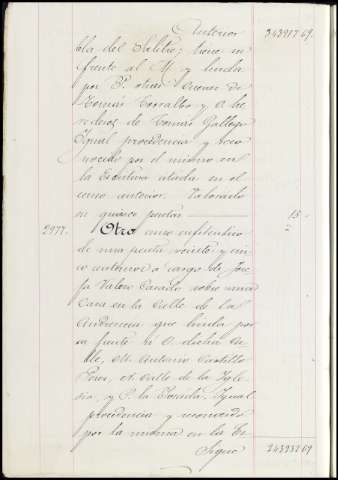 Anterior 343917'69.
lla del Salitre; tiene su
frente al M. y linda
por P. otras Cuevas de
Tomás Torralba y a he-
rederos de Tomás Gallego
Igual procedencia y reco-
nocido por el mismo en
la Escritura citada en el
censo anterior. Valorado
en quince pesetas 15 "
2977. Otro censo enfitéutico
de una peseta veinte y cin-
co céntimos a cargo de Jose-
fa Valero Casado sobre una
Casa en la Calle de la
Audiencia que linda por
su frente N. o dicha Ca-
lle, M. Antonio Castillo
Pérez, calle de la Igle-
sia, y P. la Tercia. Igual
procedencia y reconocido
por la misma en la Es-
Sigue 343932'69